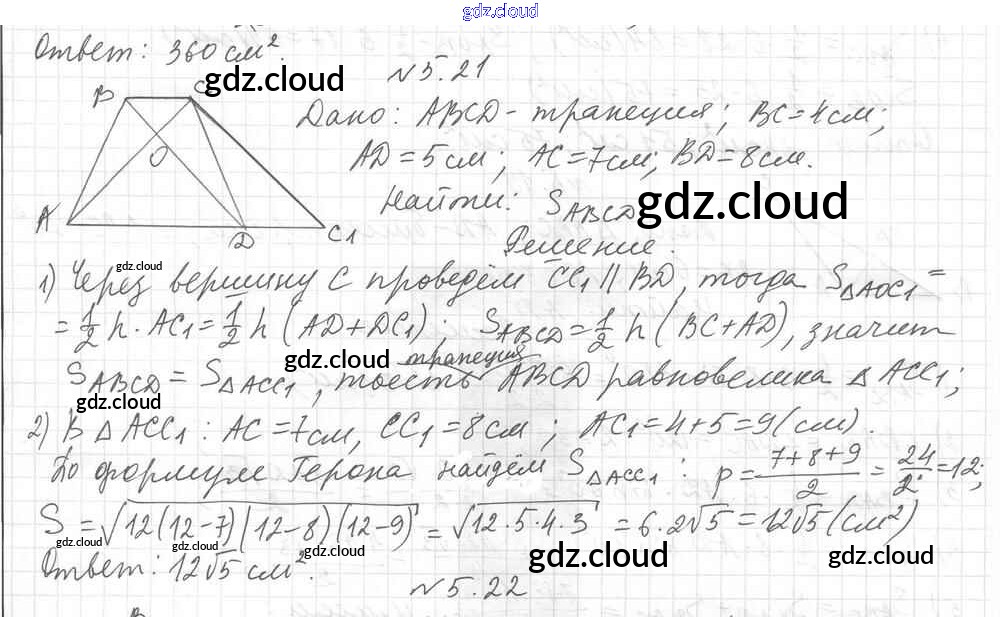 gdz.cloud
Ответ: 360 см².
N 5.21
gdz.cloud
B C
O
A D C1
Дано: ABCD - трапеция; BC=4см;
AD=5см; AC=7см; BD=8см.
Найти: S_ABCD
gdz.cloud
Решение.
gdz.cloud
1) Через вершину C проведём CC₁ || BD, тогда S_ΔAOC₁ =
= 1/2 h · AC₁ = 1/2 h (AD+DC₁); S_ABCD = 1/2 h (BC+AD), значит
gdz.cloud
трапеция
S_ABCD = S_ΔACC₁, тоесть ABCD равновелика Δ ACC₁;
gdz.cloud
2) В Δ ACC₁: AC=7см, CC₁=8см; AC₁=4+5=9(см).
По формуле Герона найдём S_ΔACC₁: p = (7+8+9)/2 = 24/2 = 12;
S = √(12(12-7)(12-8)(12-9)) = √(12·5·4·3) = 6·2√5 = 12√5 (см²)
gdz.cloud gdz.cloud gdz.cloud gdz.cloud gdz.cloud
Ответ: 12√5 см².
N 5.22
B